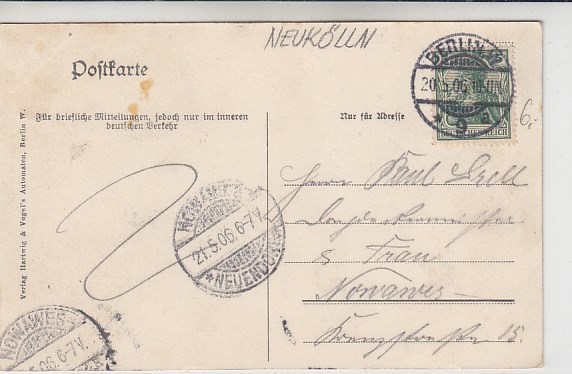 NEUKÖLLN
Postkarte
BERLIN W.
20.5.06.10-11N.
* 9 a
REICH
6.-
Für briefliche Mitteilungen, jedoch nur im inneren
deutschen Verkehr
Nur für Adresse
Verlag Hartwig & Vogel's Automaten, Berlin W.
NOWAWES
21.5.06.6-7V.
*NEUENDO
Herrn Paul
& Frau
Nowawes
15.
NOWAWES
5.06.6-7V.